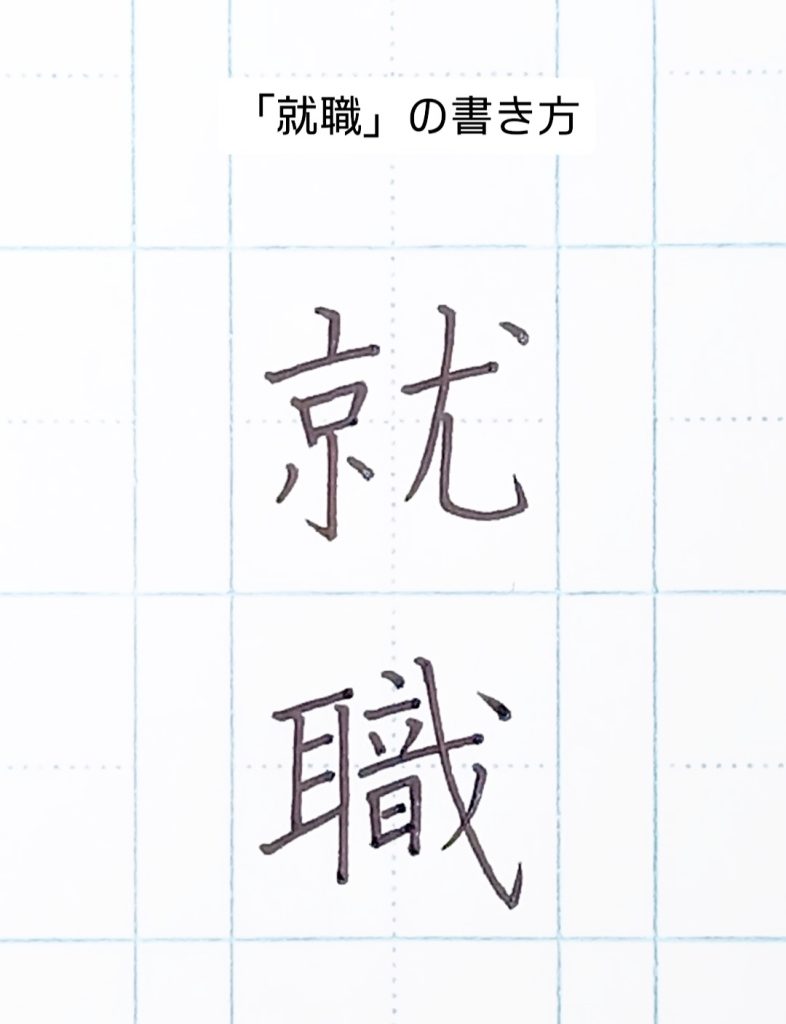 「就職」の書き方
就
職